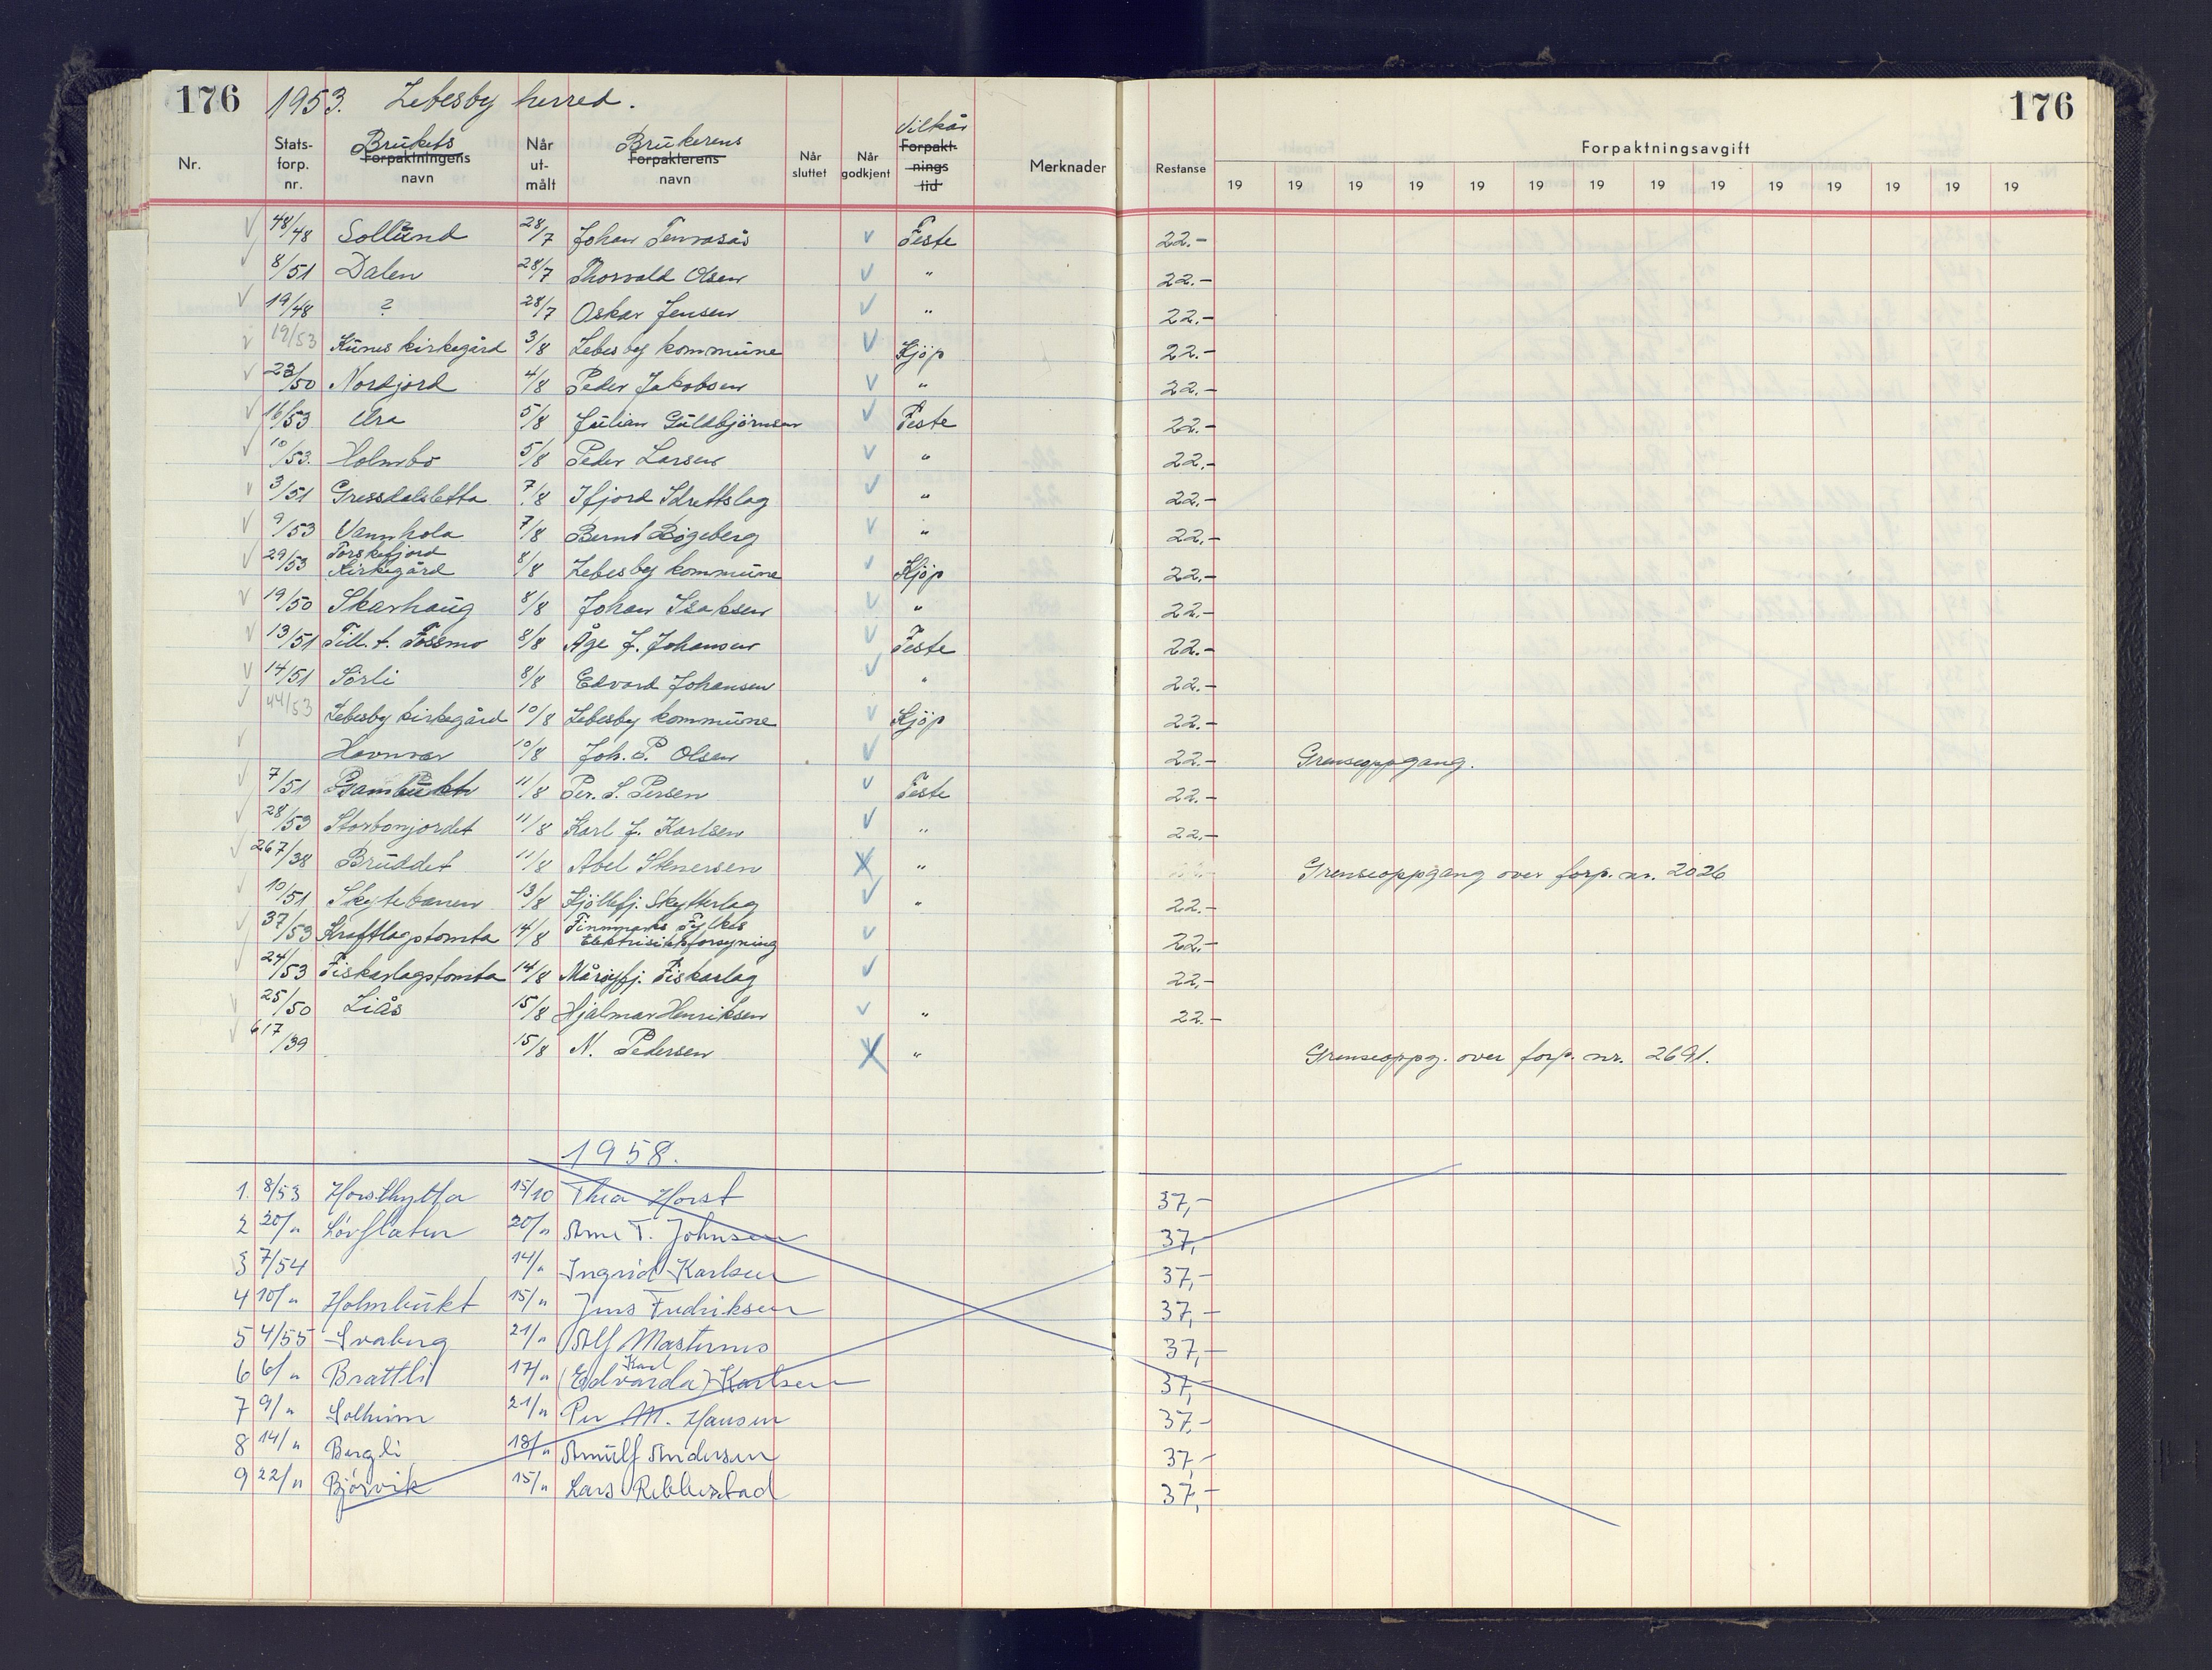 176 1953. Lebesby herred. 176
Nr. Stats-forp. nr. Brukets Forpaktningens navn Når ut-målt Brukerens Forpakterens navn Når sluttet Når godkjent Vilkår Forpakt-nings tid Merknader Restanse Forpaktningsavgift
19 19 19 19 19 19 19 19 19 19 19 19 19 19
√ 48/48 Sollund 28/7 Johan √ Feste 22.-
√ 8/51 Dalen 28/7 Thorvald Olsen √ " 22.-
√ 19/48 ? 28/7 Oskar Jensen √ " 22.-
√ 19/53 Kunes kirkegård 3/8 Lebesby kommune √ Kjöp 22.-
√ 23/50 Nordjord 4/8 Peder Jakobsen √ " 22.-
√ 16/53 Ura 5/8 Julian Guldbjörnsen √ Feste 22.-
√ 10/53. Holmbo 5/8 Peder Larsen √ " 22.-
√ 3/51 Gressdalsletta 7/8 Ifjord Idrettslag √ " 22.-
√ 9/53 Vannhola 7/8 Bernt Bøgeberg √ " 22.-
√ 29/53 Torskefjord Kirkegård 8/8 Lebesby kommune √ Kjöp 22.-
√ 19/50 Skarhaug 8/8 Johan Isaksen √ " 22.-
√ 13/51 Till. t. Fossmo 8/8 Åge J. Johansen √ Feste 22.-
√ 14/51 Sörli 8/8 Edvard Johansen √ " 22.-
√ 44/53 Lebesby kirkegård 10/8 Lebesby kommune √ Kjöp 22.-
√ Havnvær 10/8 Joh. P. Olsen √ 22.- Grenseoppgang.
√ 7/51 11/8 Per. S. Persen √ Feste 22.-
√ 28/53 Storbonjordet 11/8 Karl J. Karlsen √ " 22.-
√ 267/38 Bruddet 11/8 Abel Stenersen X " Grenseoppgang over forp. nr. 2026
√ 10/51 Skytebanen 13/8 Kjöllefj. Skytterlag √ " 22.-
√ 37/53 Kraftlagstomta 14/8 Finnmarks Fylkes Elektrisitetsforsyning √ 22.-
√ 24/53 Fiskarlagstomta 14/8 Fiskarlag √ 22.-
√ 25/50 Liås 15/8 Hjalmar Henriksen √ " 22.-
√ 617/39 15/8 N. Pedersen X " Grenseoppg. over forp. nr. 2691.
1958.
1. 8/53 Horsthytta 15/10 Thea Horst 37,-
2 20/" Løvflaten 20/" Arne T. Johnsen 37,-
3 7/54 14/" Ingrid Karlsen 37,-
4 10/" Holmbukt 15/" Jens Fredriksen 37,-
5 4/55 Svaberg 21/" Alf Masternes 37,-
6 6/" Brattli 17/" (Edvarda) Karl Karlsen 37,-
7 9/" Solheim 21/" Per M. Hansen 37,-
8 14/" Bergli 18/" Arnulf Andersen 37,-
9 22/" Bjørvik 15/" Lars Rebbestad 37,-